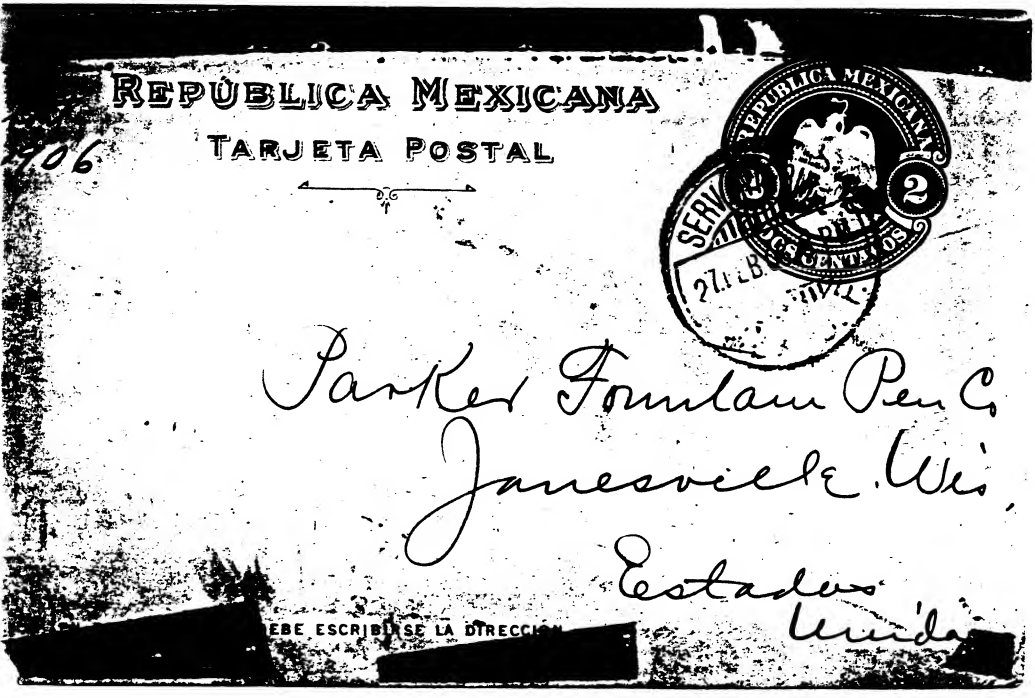 REPÚBLICA MEXICANA
TARJETA POSTAL
1906
REPUBLICA MEXICANA
2
DOS CENTAVOS
SERV
27.FEB.
Parker Fountain Pen Co
Janesville. Wis.
Estados
Unidos
DEBE ESCRIBIRSE LA DIRECCION